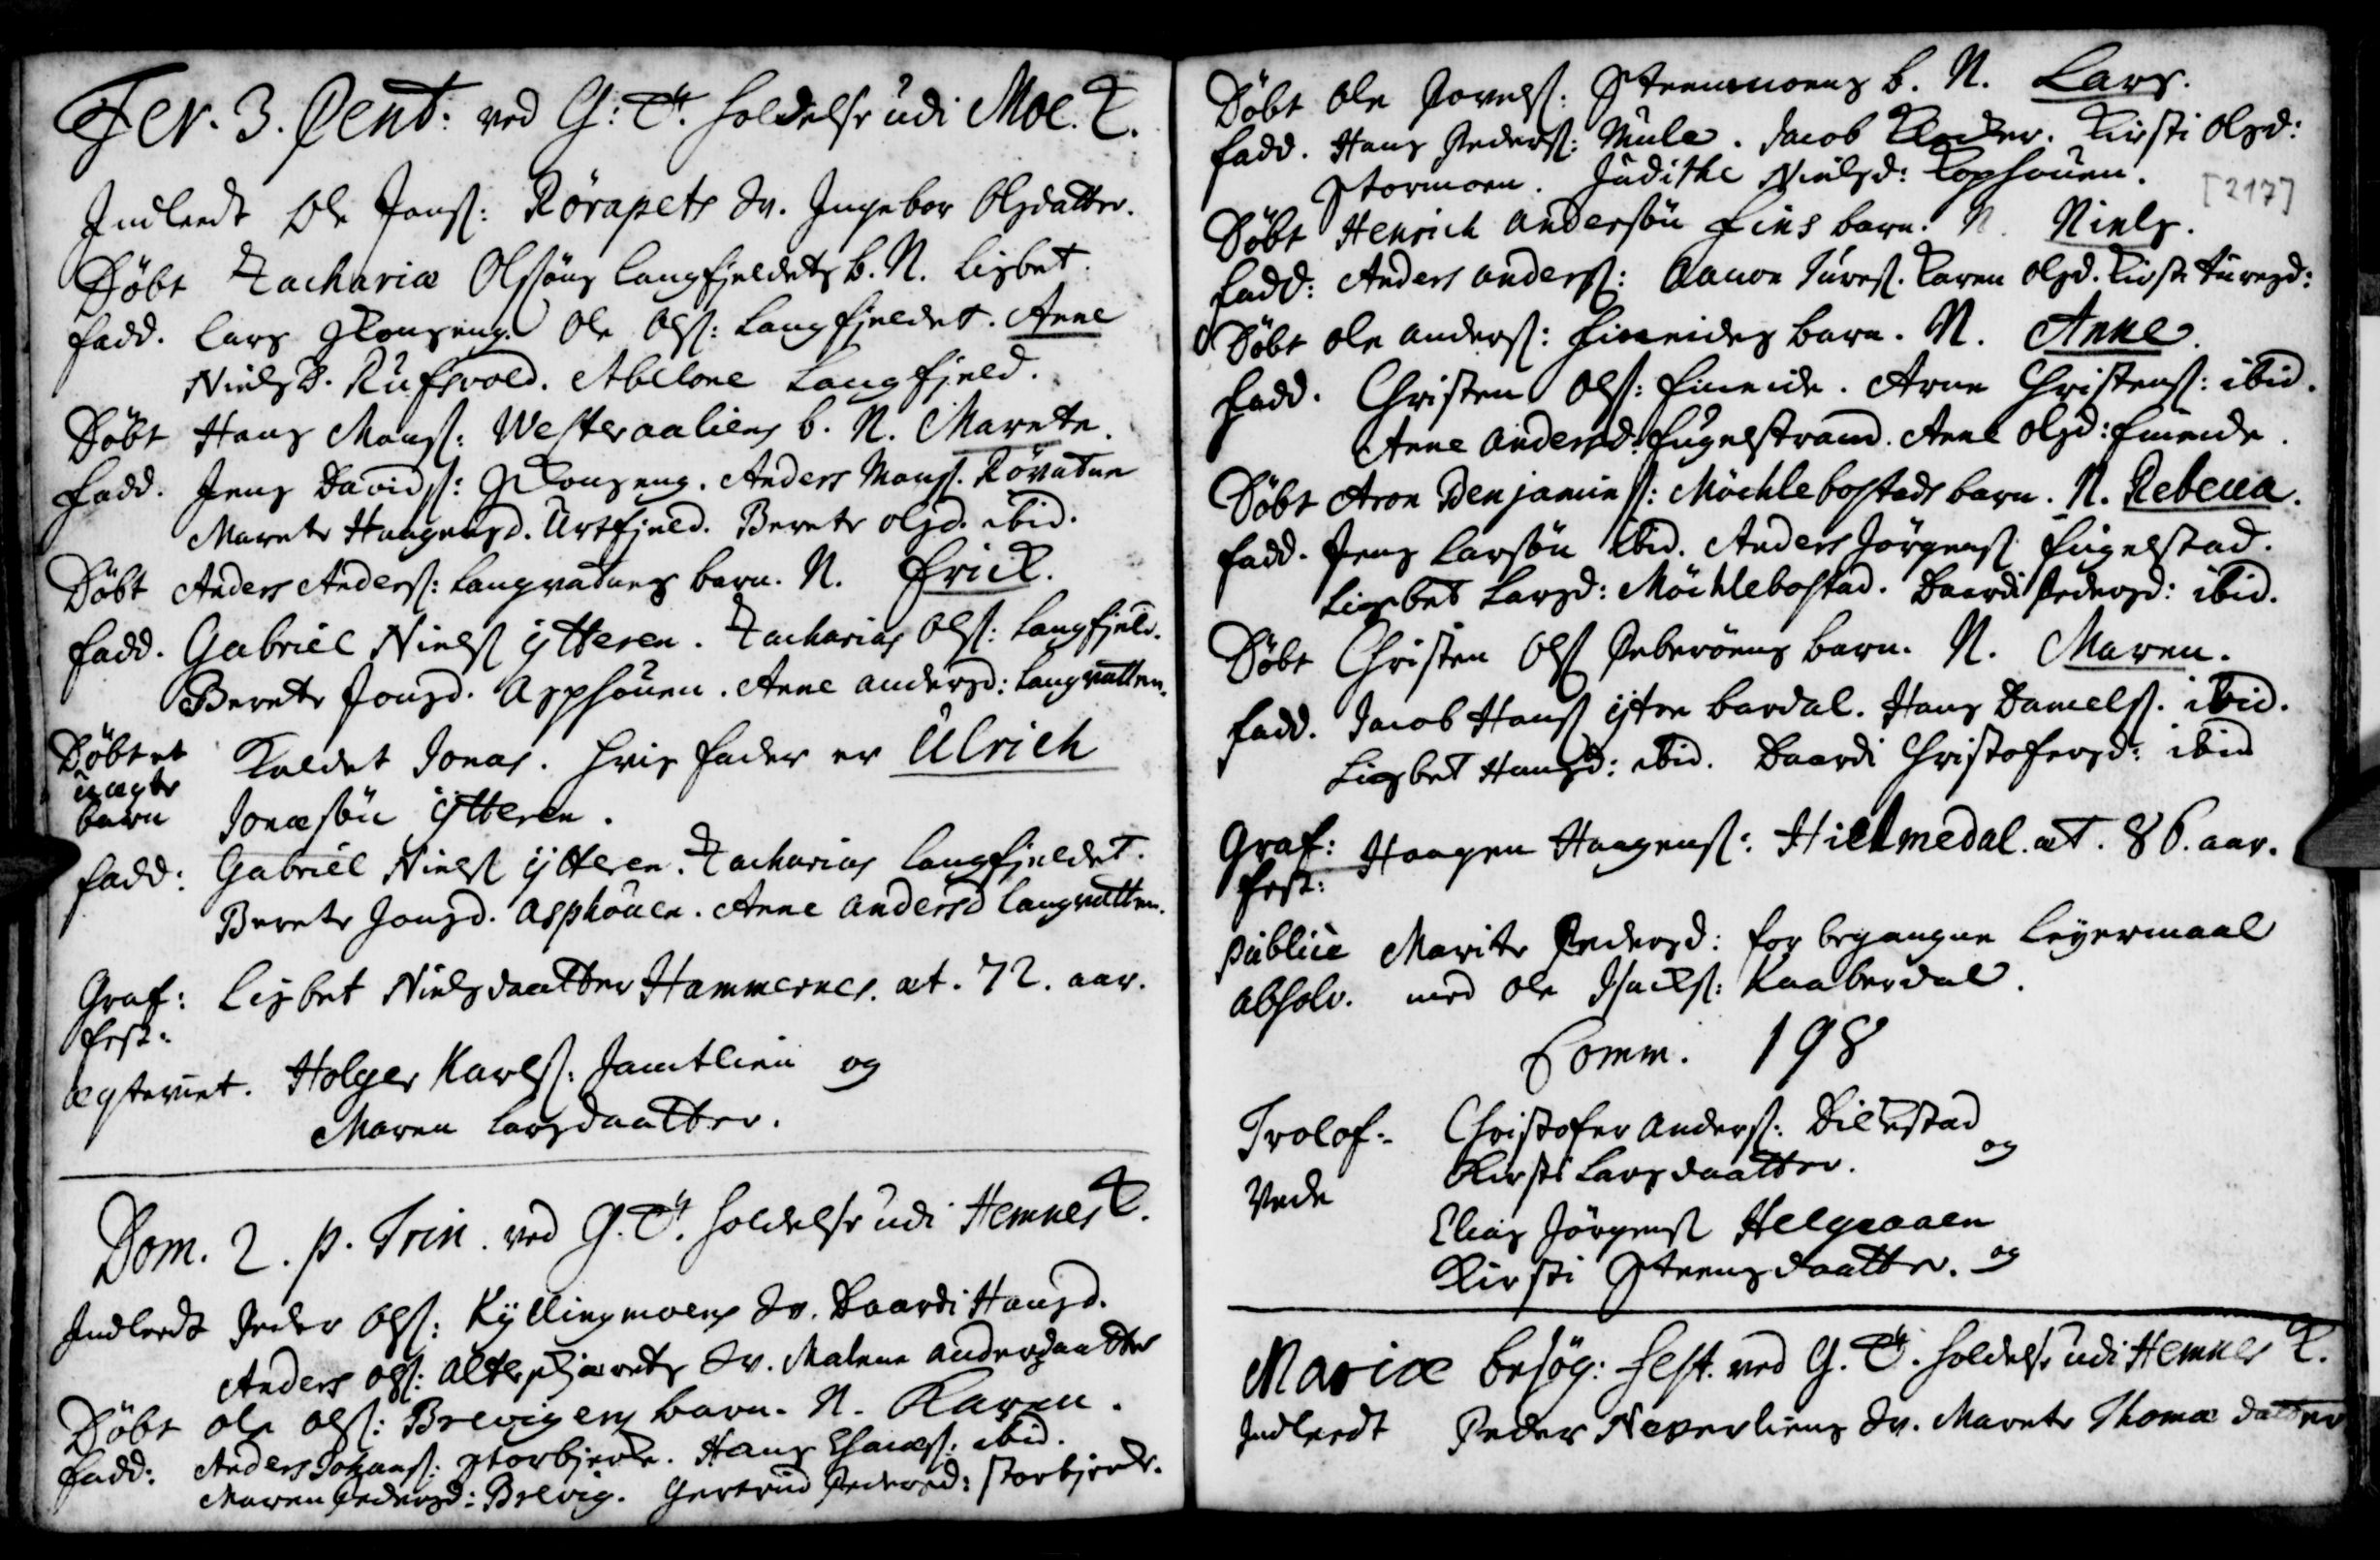 Fer. 3. Pent: ved G: T. holdelse udi Moe. K.
Indleedt Ole Jonss: Rörapets Qv. Ingebor Olsdatter.
Döbt Zachariæ Olssöns Langfjeldets b. N. Lisbet.
fadd. Lars Glonseng. Ole Olss: Langfjeldet. Anne
Nielsd. Rufsvold. Abelone Langfjeld.
Döbt Hans Monss: Westeraaliens b. N. Marete.
fadd. Jens Davidss: Glonseng. Anders Monss. Rövatne
Marete Haagensd. Urtfjeld. Berete olsd. ibid.
Döbt Anders Anderss: Langvatnes barn. N. Erick.
fadd. Gabriel Nielss ytteren. Zacharias Olss: Langfjeld.
Berete Jonsd. Asphouen. Anne andersd: Langvatten.
Döbt et uægte barn
Kaldet Jonas. hvis fader er Ulrich
Jonæsön ytteren.
fadd: Gabriel Nielss ytteren. Zacharias Langfjeldet.
Berete Jonsd. Asphouen. Anne Andersd Langvatten.
Graf: fest: Lisbet Nielsdaatter Hammernes. æt. 72. aar.
ægteviet. Holger Karlss: Jamtlien og
Maren Larsdaatter.
Dom. 2. p. Trin. ved G. T. holdelse udi Hemnes K.
Indleedt Peder Olss: Kyllingmoens Qv. Baardi Hansd.
Anders Olss: Alterskjærets Qv. Malene Andersdaatter
Döbt ole olss: Brevigens barn. N. Karen.
fadd: Anders Johanss: Storbjerk. Hans ibid.
Maren Pedersd: Brevig. Gertrud Pedersd: Storbjerk.
Döbt Ole Povelss: Steenmoens b. N. Lars.
fadd. Hans Pederss: Mula. Jacob Klocker. Kirsti olsd:
Stormoen. Judithe Nielsd: Kophouen.
[217]
Döbt Henrich Anderssön Fins barn. N. Niels.
fadd: Anders anderss: Aanon Turess. Karen olsd. Kirste Turesd:
Döbt ole anderss: Finneides barn. N. Anne.
fadd. Christen Olss: Fineide. Arne Christenss: ibid.
Anne Andersd: Fugelstrand. Anne olsd: Fineide.
Döbt Aron Benjaminss: Möchlebostads barn. N. Rebecca.
fadd. Jens Larssön ibid. Anders Jörgenss Fugelstad.
Lisbet Larsd: Möchlebostad. Baardi Pedersd: ibid.
Döbt Christen Olss Seberöens barn. N. Maren.
fadd. Jacob Hanss ytre bardal. Hans Danielss. ibid.
Lisbet Hansd: ibid. Baardi Christofersd: ibid
Graf: fest: Haagen Haagenss: Hielmedal. æt. 86. aar.
publice Marite Pedersd: for begangne Leyermaal
absolv. med Ole Isachss: Kaaberdal.
Comm. 198
Trolof: Christofer Anderss: Dilkestad og
Kirsti Larsdaatter.
vede
Elias Jörgenss Helgaaen og
Kirsti Steensdaatter.
Mariæ besög: fest. ved G. T. holdelse udi Hemnes K.
Indleedt Peder Neverliens Qv. Marete Thomæ datter